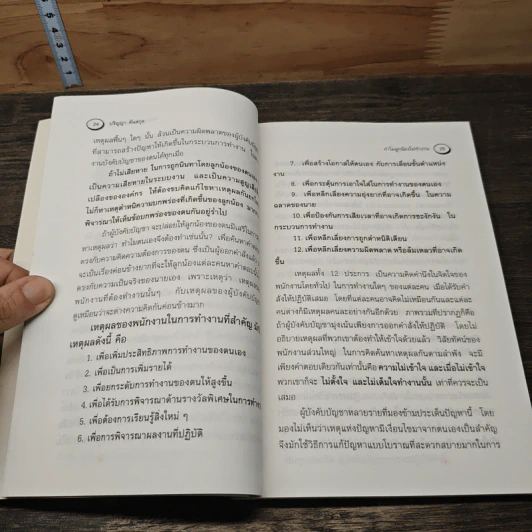 24 ปริญญา ตันสกุล
เหตุผลพื้นๆ ใดๆ นั้น ล้วนเป็นความผิดพลาดของผู้บังคับ
ที่สามารถสร้างปัญหาให้เกิดขึ้นในกระบวนการทำงาน
งานบังคับบัญชาของตนได้ทุกเมื่อ
ถ้าไม่เสียหาย ในการถูกนินทาโดยลูกน้องของตน
เป็นความเสียหายในระบบงาน และเป็นความสูญเสีย
เปลืองขององค์กร ให้ต้องขบคิดแก้ไขหาเหตุผลกัน
ไม่ก็หาเหตุตำหนิความบกพร่องที่เกิดขึ้นของลูกน้อง
พิจารณาให้เห็นข้อบกพร่องของตนกันอยู่ร่ำไป
ถ้าผู้บังคับบัญชา จะปล่อยให้ลูกน้องของตนมีเสรีในการ
หาเหตุผลว่า ทำไมตนเองจึงต้องทำเช่นนั้น? เพื่อค้นหาคำตอบ
ตรงกับความคิดความต้องการของตน ซึ่งเป็นผู้ออกคำสั่งแล้ว
จะเป็นเรื่องค่อนข้างยากที่จะให้ลูกน้องแต่ละคนหาคำตอบนั้น
ตรงกับความเป็นจริงของนายเอง เพราะเหตุว่า เหตุผล
พนักงานที่ต้องทำงานนั้นๆ กับเหตุผลของผู้บังคับบัญ
ดูเหมือนว่าจะต่างความคิดกันค่อนข้างมาก
เหตุผลของพนักงานในการทำงานที่สำคัญ
เหตุผลดังนี้ คือ
1. เพื่อเพิ่มประสิทธิภาพการทำงานของตนเอง
2. เพื่อเป็นการเพิ่มรายได้
3. เพื่อยกระดับการทำงานของตนให้สูงขึ้น
4. เพื่อได้รับการพิจารณาด้านรางวัลพิเศษในการทำงาน
5. เพื่อต้องการเรียนรู้สิ่งใหม่ ๆ
6. เพื่อการพิจารณาผลงานที่ปฏิบัติ
ทำไมลูกน้องไม่ทำงาน 25
7. เพื่อสร้างโอกาสให้ตนเอง กับการเลื่อนชั้นตำแหน่ง
งาน
8. เพื่อกระตุ้นการเอาใจใส่ในการทำงานของตนเอง
9. เพื่อหลีกเลี่ยงความยุ่งยากที่อาจเกิดขึ้น ในความ
ฉลาดของนาย
10. เพื่อป้องกันการเสียเวลาที่อาจเกิดการชะงักงัน ใน
กระบวนการทำงาน
11. เพื่อหลีกเลี่ยงการถูกตำหนิติเตียน
12. เพื่อหลีกเลี่ยงความผิดพลาด หรือล้มเหลวที่อาจเกิด
ขึ้น
เหตุผลทั้ง 12 ประการ เป็นความคิดคำนึงในจิตใจของ
พนักงานโดยทั่วไป ในการทำงานใดๆ ของแต่ละคน เมื่อได้รับคำ
สั่งให้ปฏิบัติเสมอ โดยที่แต่ละคนอาจคิดไม่เหมือนกันและแต่ละ
คนต่างก็มีเหตุผลคนละอย่างกันอีกด้วย ภาพรวมที่ปรากฏก็คือ
ถ้าผู้บังคับบัญชามุ่งเน้นเพียงการออกคำสั่งให้ปฏิบัติ โดยไม่
อธิบายเหตุผลที่พวกเขาต้องทำให้เข้าใจด้วยแล้ว วิสัยทัศน์ของ
พนักงานส่วนใหญ่ ในการคิดค้นหาเหตุผลกันตามลำพัง จะมี
เพียงคำตอบเดียวเท่านั้นคือ ความไม่เข้าใจ และเมื่อไม่เข้าใจ
พวกเขาก็จะ ไม่ตั้งใจ และไม่เต็มใจทำงานนั้น เท่าที่ควรจะเป็น
เสมอ
ผู้บังคับบัญชาหลายรายที่มองข้ามประเด็นปัญหานี้ โดย
มองไม่เห็นว่าเหตุแห่งปัญหามีเงื่อนไขมาจากตนเองเป็นสำคัญ
จึงมักใช้วิธีการแก้ปัญหาแบบโบราณที่สะดวกสบายมากในการ